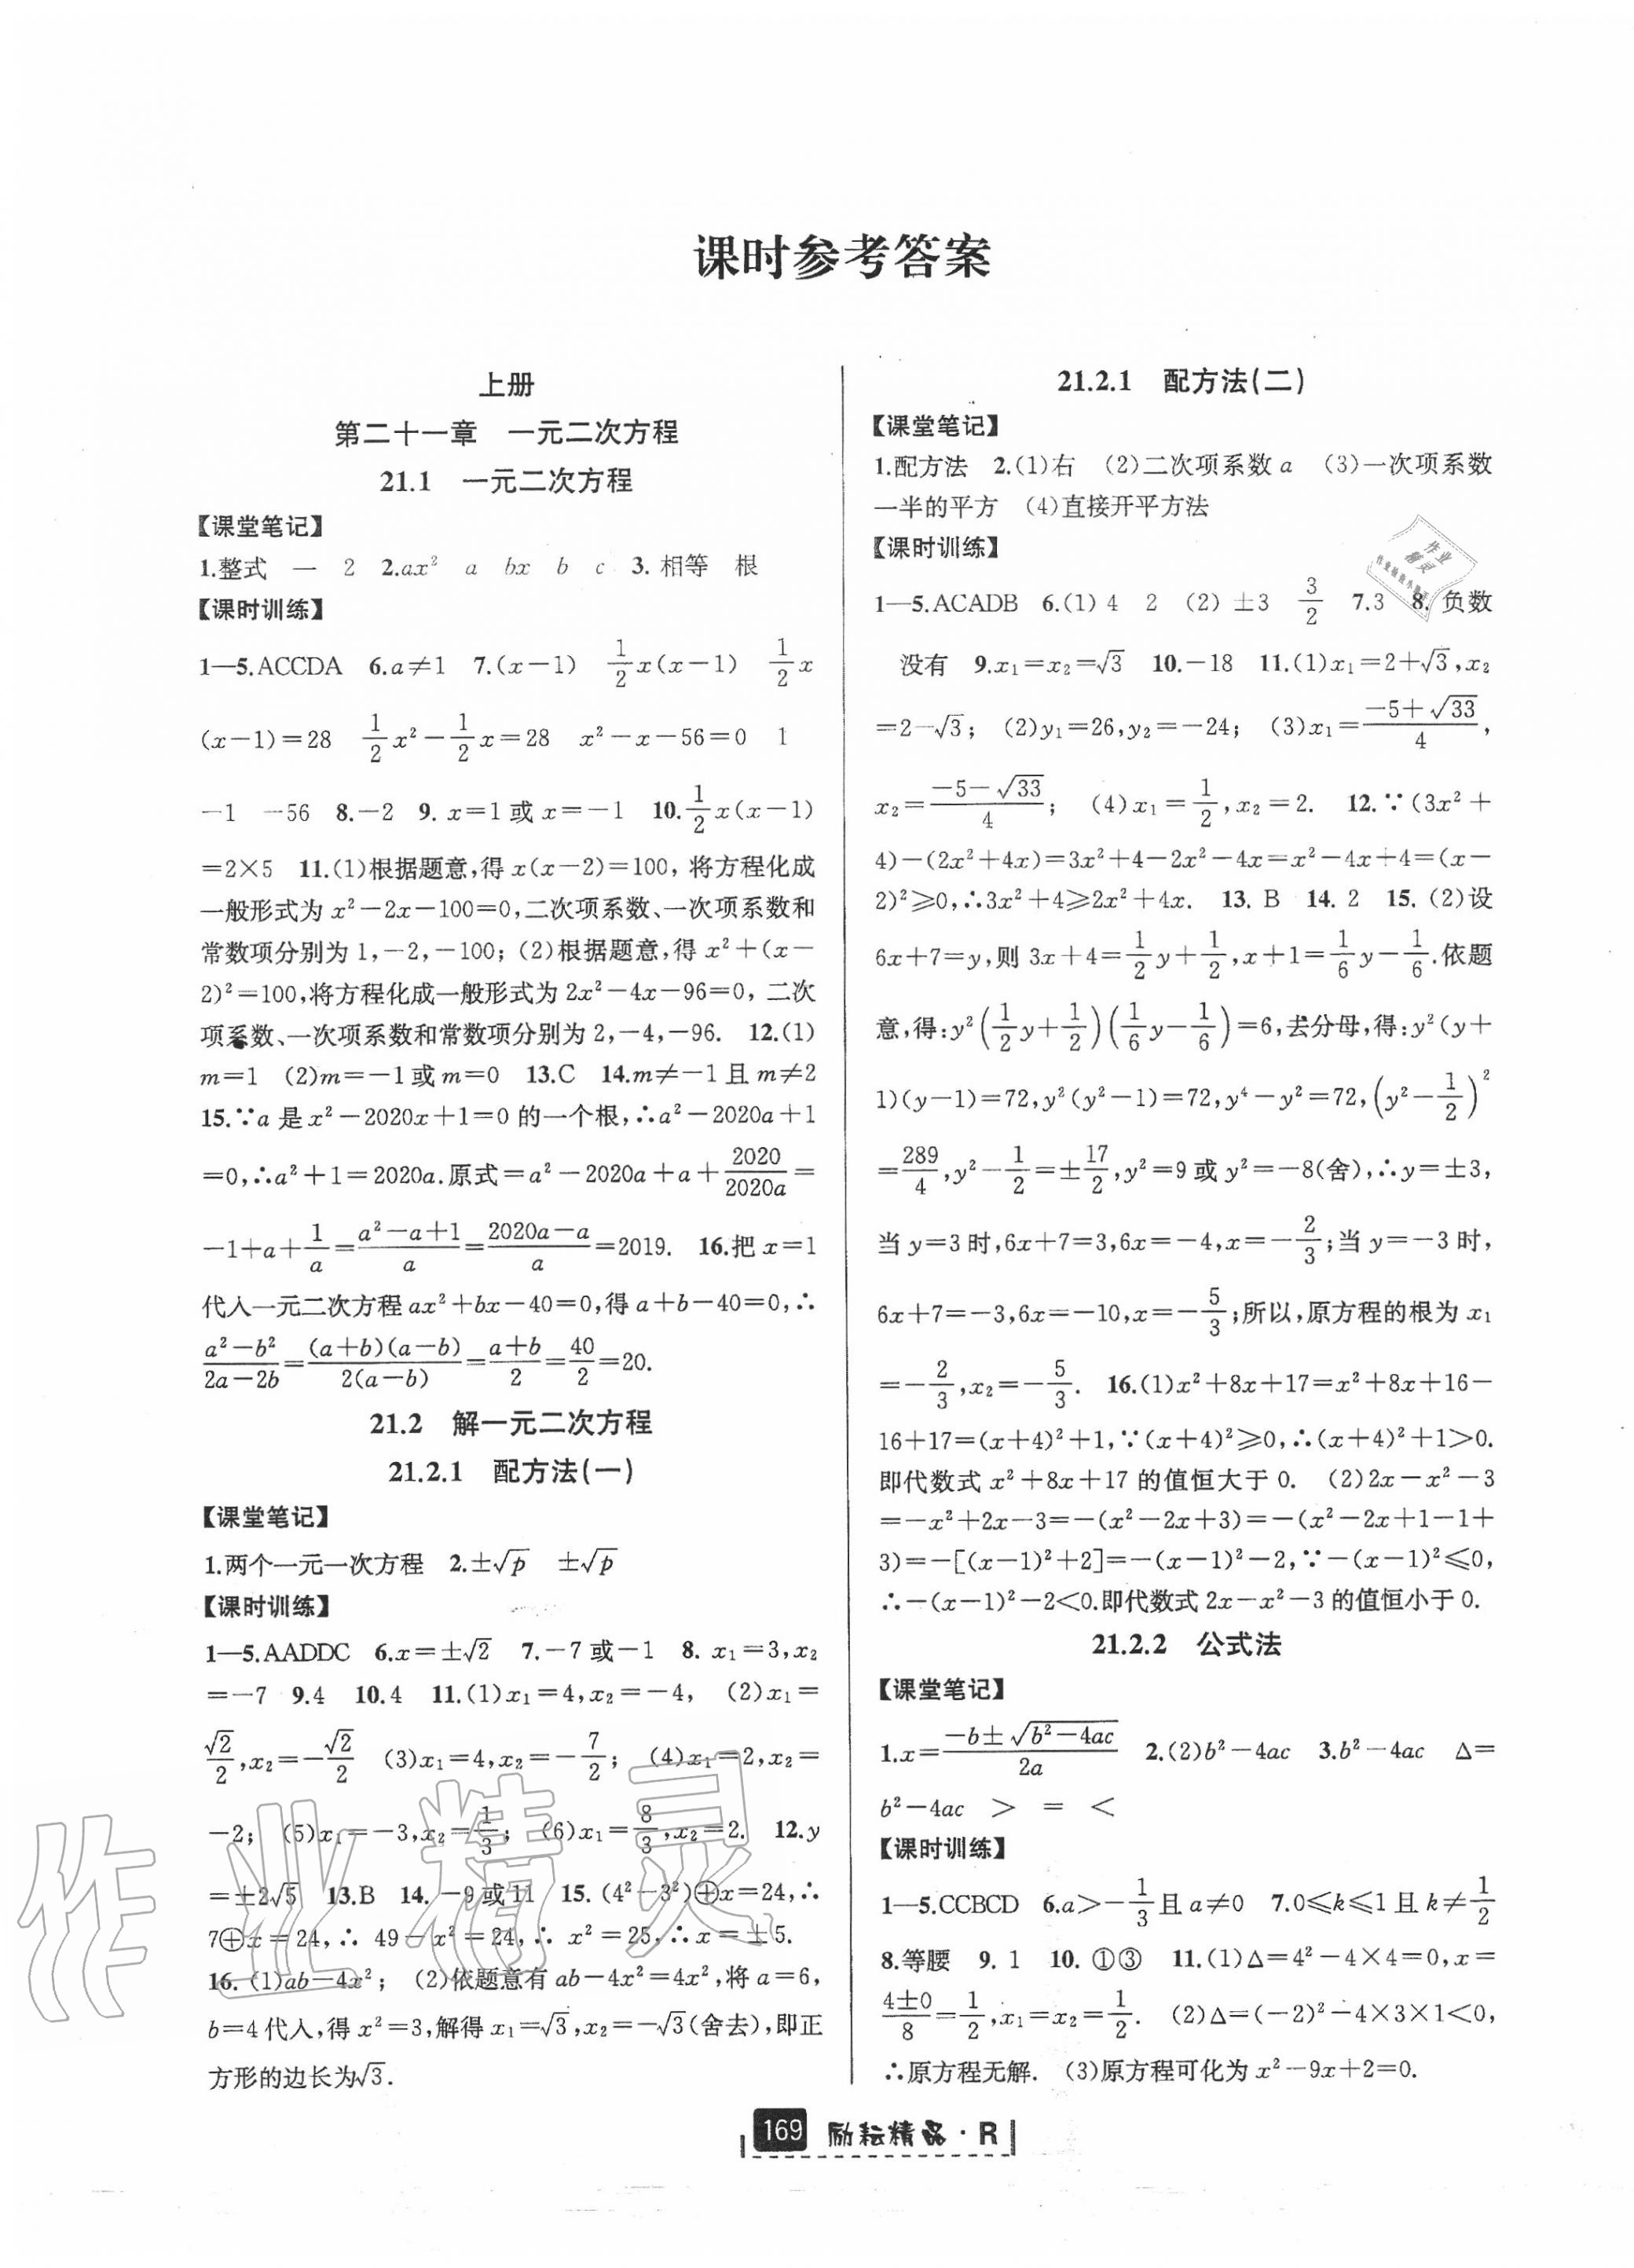 课时参考答案
上册
第二十一章 一元二次方程
21.1 一元二次方程
【课堂笔记】
1.整式 一 2 2.ax² a bx b c 3. 相等 根
【课时训练】
1—5.ACCDA 6.a≠1 7.(x-1) 1/2x(x-1) 1/2x
(x-1)=28 1/2x²-1/2x=28 x²-x-56=0 1
-1 -56 8.-2 9. x=1或x=-1 10.1/2x(x-1)
=2×5 11.(1)根据题意,得x(x-2)=100, 将方程化成
一般形式为x²-2x-100=0,二次项系数、一次项系数和
常数项分别为1,-2,-100; (2)根据题意,得x²+(x-
2)²=100,将方程化成一般形式为2x²-4x-96=0, 二次
项系数、一次项系数和常数项分别为2,-4,-96. 12.(1)
m=1 (2)m=-1或m=0 13.C 14.m≠-1且m≠2
15.∵a是x²-2020x+1=0的一个根,∴a²-2020a+1
=0,∴a²+1=2020a.原式=a²-2020a+a+2020/2020a=
-1+a+1/a=(a²-a+1)/a=(2020a-a)/a=2019. 16.把x=1
代人一元二次方程ax²+bx-40=0,得a+b-40=0,∴
(a²-b²)/(2a-2b)=(a+b)(a-b)/2(a-b)=(a+b)/2=40/2=20.
21.2 解一元二次方程
21.2.1 配方法(一)
【课堂笔记】
1.两个一元一次方程 2.±√p ±√p
【课时训练】
1—5.AADDC 6.x=±√2 7.-7或-1 8. x₁=3,x₂
=-7 9.4 10.4 11.(1)x₁=4,x₂=-4, (2)x₁=
√2/2,x₂=-√2/2 (3)x₁=4,x₂=-7/2; (4)x₁=2,x₂=
-2; (5)x₁=-3,x₂=1/3; (6)x₁=8/3,x₂=2. 12.y
=±2√5 13.B 14.-9或11 15.(4²-3²)⊕x=24,∴
7⊕x=24,∴ 49-x²=24,∴ x²=25,∴x=±5.
16. (1)ab-4x²; (2)依题意有ab-4x²=4x²,将a=6,
b=4代人,得x²=3,解得x₁=√3,x₂=-√3(舍去),即正
方形的边长为√3.
21.2.1 配方法(二)
【课堂笔记】
1.配方法 2.(1)右 (2)二次项系数a (3)一次项系数
一半的平方 (4)直接开平方法
【课时训练】
1—5.ACADB 6.(1)4 2 (2)±3 3/2 7.3 8. 负数
没有 9.x₁=x₂=√3 10.-18 11.(1)x₁=2+√3,x₂
=2-√3; (2)y₁=26,y₂=-24; (3)x₁=(-5+√33)/4,
x₂=(-5-√33)/4; (4)x₁=1/2,x₂=2. 12.∵(3x²+
4)-(2x²+4x)=3x²+4-2x²-4x=x²-4x+4=(x-
2)²≥0,∴3x²+4≥2x²+4x. 13. B 14. 2 15. (2)设
6x+7=y,则3x+4=1/2y+1/2,x+1=1/6y-1/6.依题
意,得:y²(1/2y+1/2)(1/6y-1/6)=6,去分母,得:y²(y+
1)(y-1)=72,y²(y²-1)=72,y⁴-y²=72,(y²-1/2)²
=289/4,y²-1/2=±17/2,y²=9或y²=-8(舍),∴y=±3,
当y=3时,6x+7=3,6x=-4,x=-2/3;当y=-3时,
6x+7=-3,6x=-10,x=-5/3;所以,原方程的根为x₁
=-2/3,x₂=-5/3. 16.(1)x²+8x+17=x²+8x+16-
16+17=(x+4)²+1,∵(x+4)²≥0,∴(x+4)²+1>0.
即代数式x²+8x+17的值恒大于0. (2)2x-x²-3
=-x²+2x-3=-(x²-2x+3)=-(x²-2x+1-1+
3)=-[(x-1)²+2]=-(x-1)²-2,∵-(x-1)²≤0,
∴-(x-1)²-2<0.即代数式2x-x²-3的值恒小于0.
21.2.2 公式法
【课堂笔记】
1.x=(-b±√(b²-4ac))/2a 2.(2)b²-4ac 3.b²-4ac Δ=
b²-4ac > = <
【课时训练】
1—5.CCBCD 6.a>-1/3且a≠0 7.0≤k≤1且k≠1/2
8.等腰 9. 1 10. ①③ 11.(1)Δ=4²-4×4=0,x=
(4±0)/8=1/2,x₁=x₂=1/2. (2)Δ=(-2)²-4×3×1<0,
∴原方程无解. (3)原方程可化为x²-9x+2=0.
169 励耘精品·R
作业精灵
作业精灵